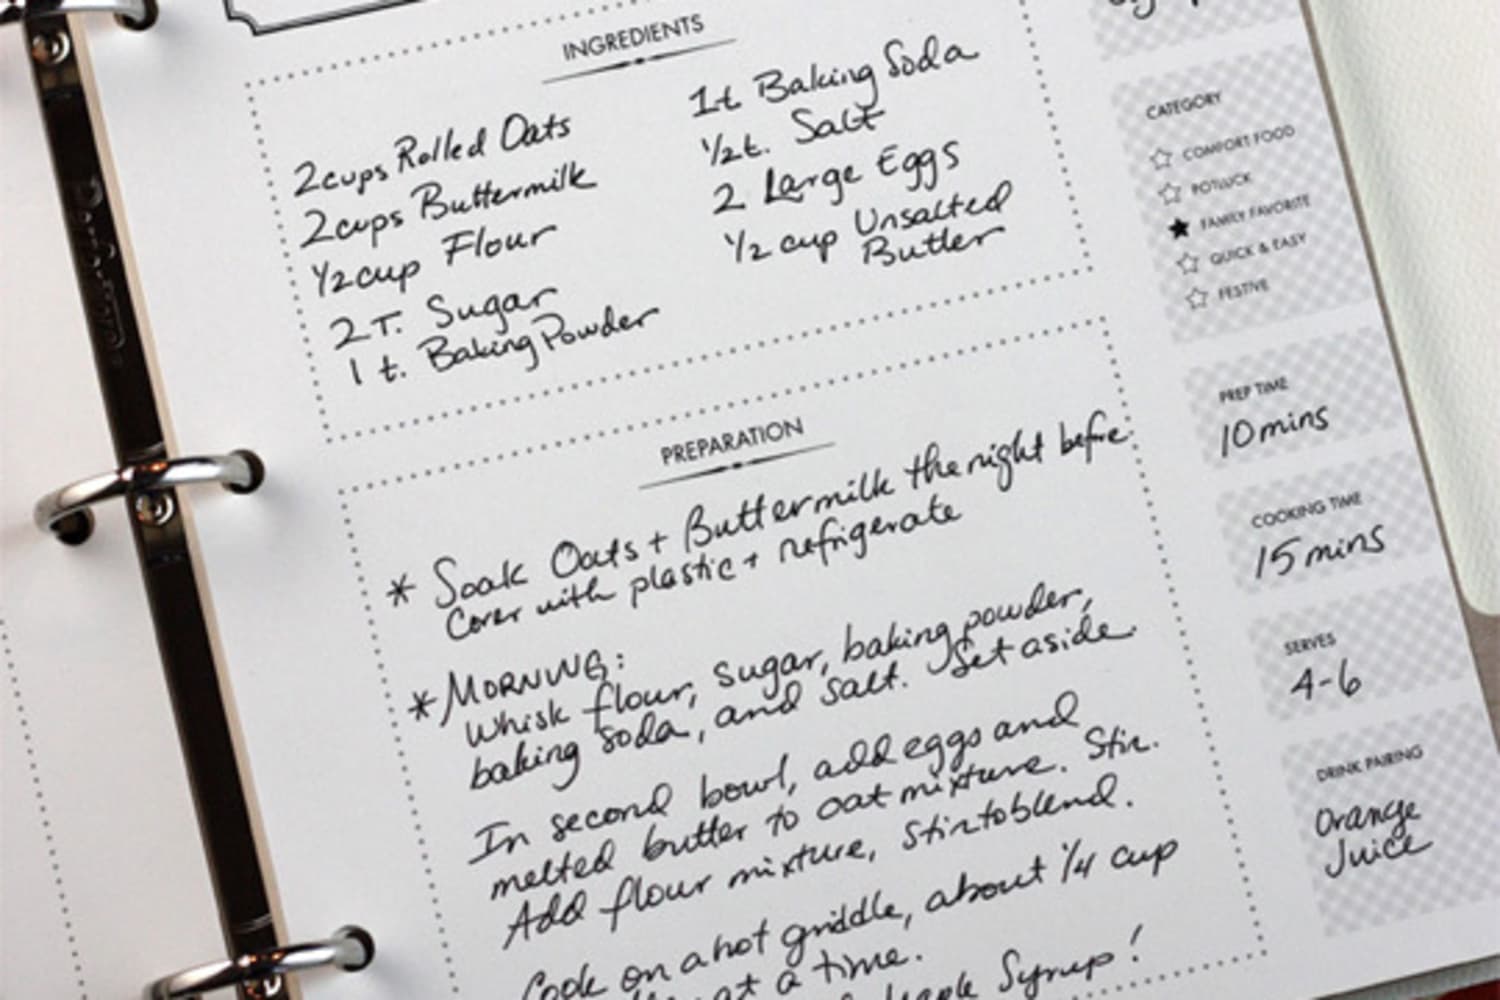 INGREDIENTS
2 cups Rolled Oats
2 cups Buttermilk
1/2 cup Flour
2 T. Sugar
1 t. Baking Powder
1 t. Baking Soda
1/2 t. Salt
2 Large Eggs
1/2 cup Unsalted
Butter
PREPARATION
* Soak Oats + Buttermilk the night before
Cover with plastic + refrigerate
* MORNING:
Whisk flour, sugar, baking powder,
baking soda, and salt. Set aside.
In second bowl, add eggs and
melted butter to oat mixture. Stir.
Add flour mixture, stir to blend.
Cook on a hot griddle, about 1/4 cup
at a time.
Maple Syrup!
CATEGORY
COMFORT FOOD
POTLUCK
FAMILY FAVORITE
QUICK & EASY
FESTIVE
PREP TIME
10 mins
COOKING TIME
15 mins
SERVES
4-6
DRINK PAIRING
Orange
Juice